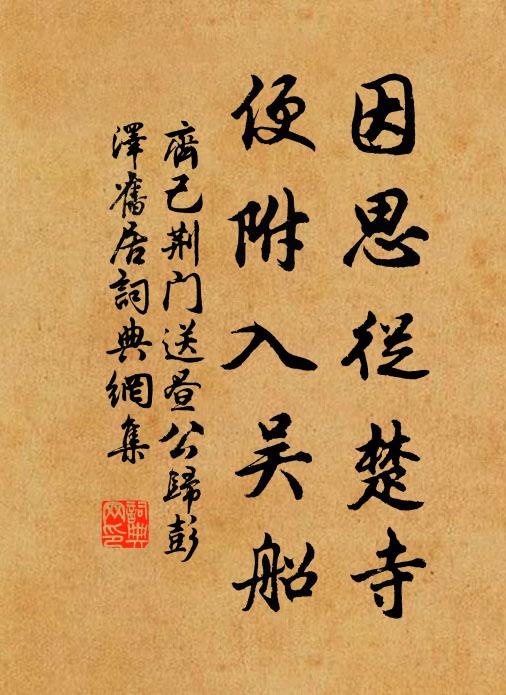 因思從楚寺
便附入吴船
齊己荆门送昼公歸彭
澤舊居詞典網集
詞典
网印